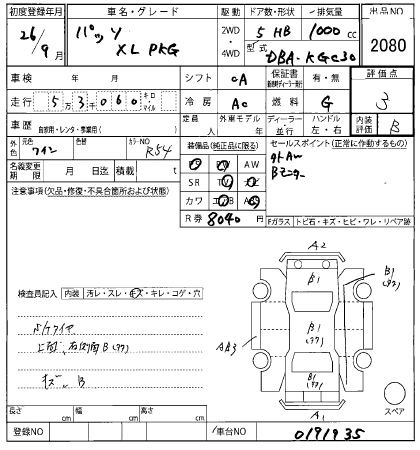 初度登録年月 車名・グレード 駆動 ドア数・形状 排気量 出品NO
26/9月 パッソ XL PKG 2WD・4WD 5 HB 1000cc 2080
型式 DBA-KGC30
車検 年 月 シフト CA 保証書 有・無 評価点
走行 53000 キロ・マイル 冷房 AC 燃料 G 3
車歴 自家用・レンタ・事業用( ) 定員 人 外車モデル 年 ディーラー・並行 ハンドル 左・右 内装評価 B
外色 元色 ワイン 色替 カラーNO R54
装備品(純正品に限る) セールスポイント(正常に作動するもの)
名義変更期限 月 日迄 積載 t
AW
SR TV ナビ
カワ エアB
R券 8040
外AW
Bモニター
注意事項(欠品・修復・不具合箇所および状態)
Fガラス トビ石・キズ・ヒビ・ワレ・リペア跡
検査員記入 内装 汚レ・スレ・キズ・キレ・コゲ・穴
キズ B
A2
B1
B1
B1
AB3
B1
A1
スペア
長さ cm 幅 cm 高さ cm
登録NO 車台NO 0191935